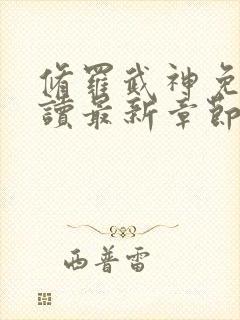 脩羅武神免
讀最新章節
西普雷